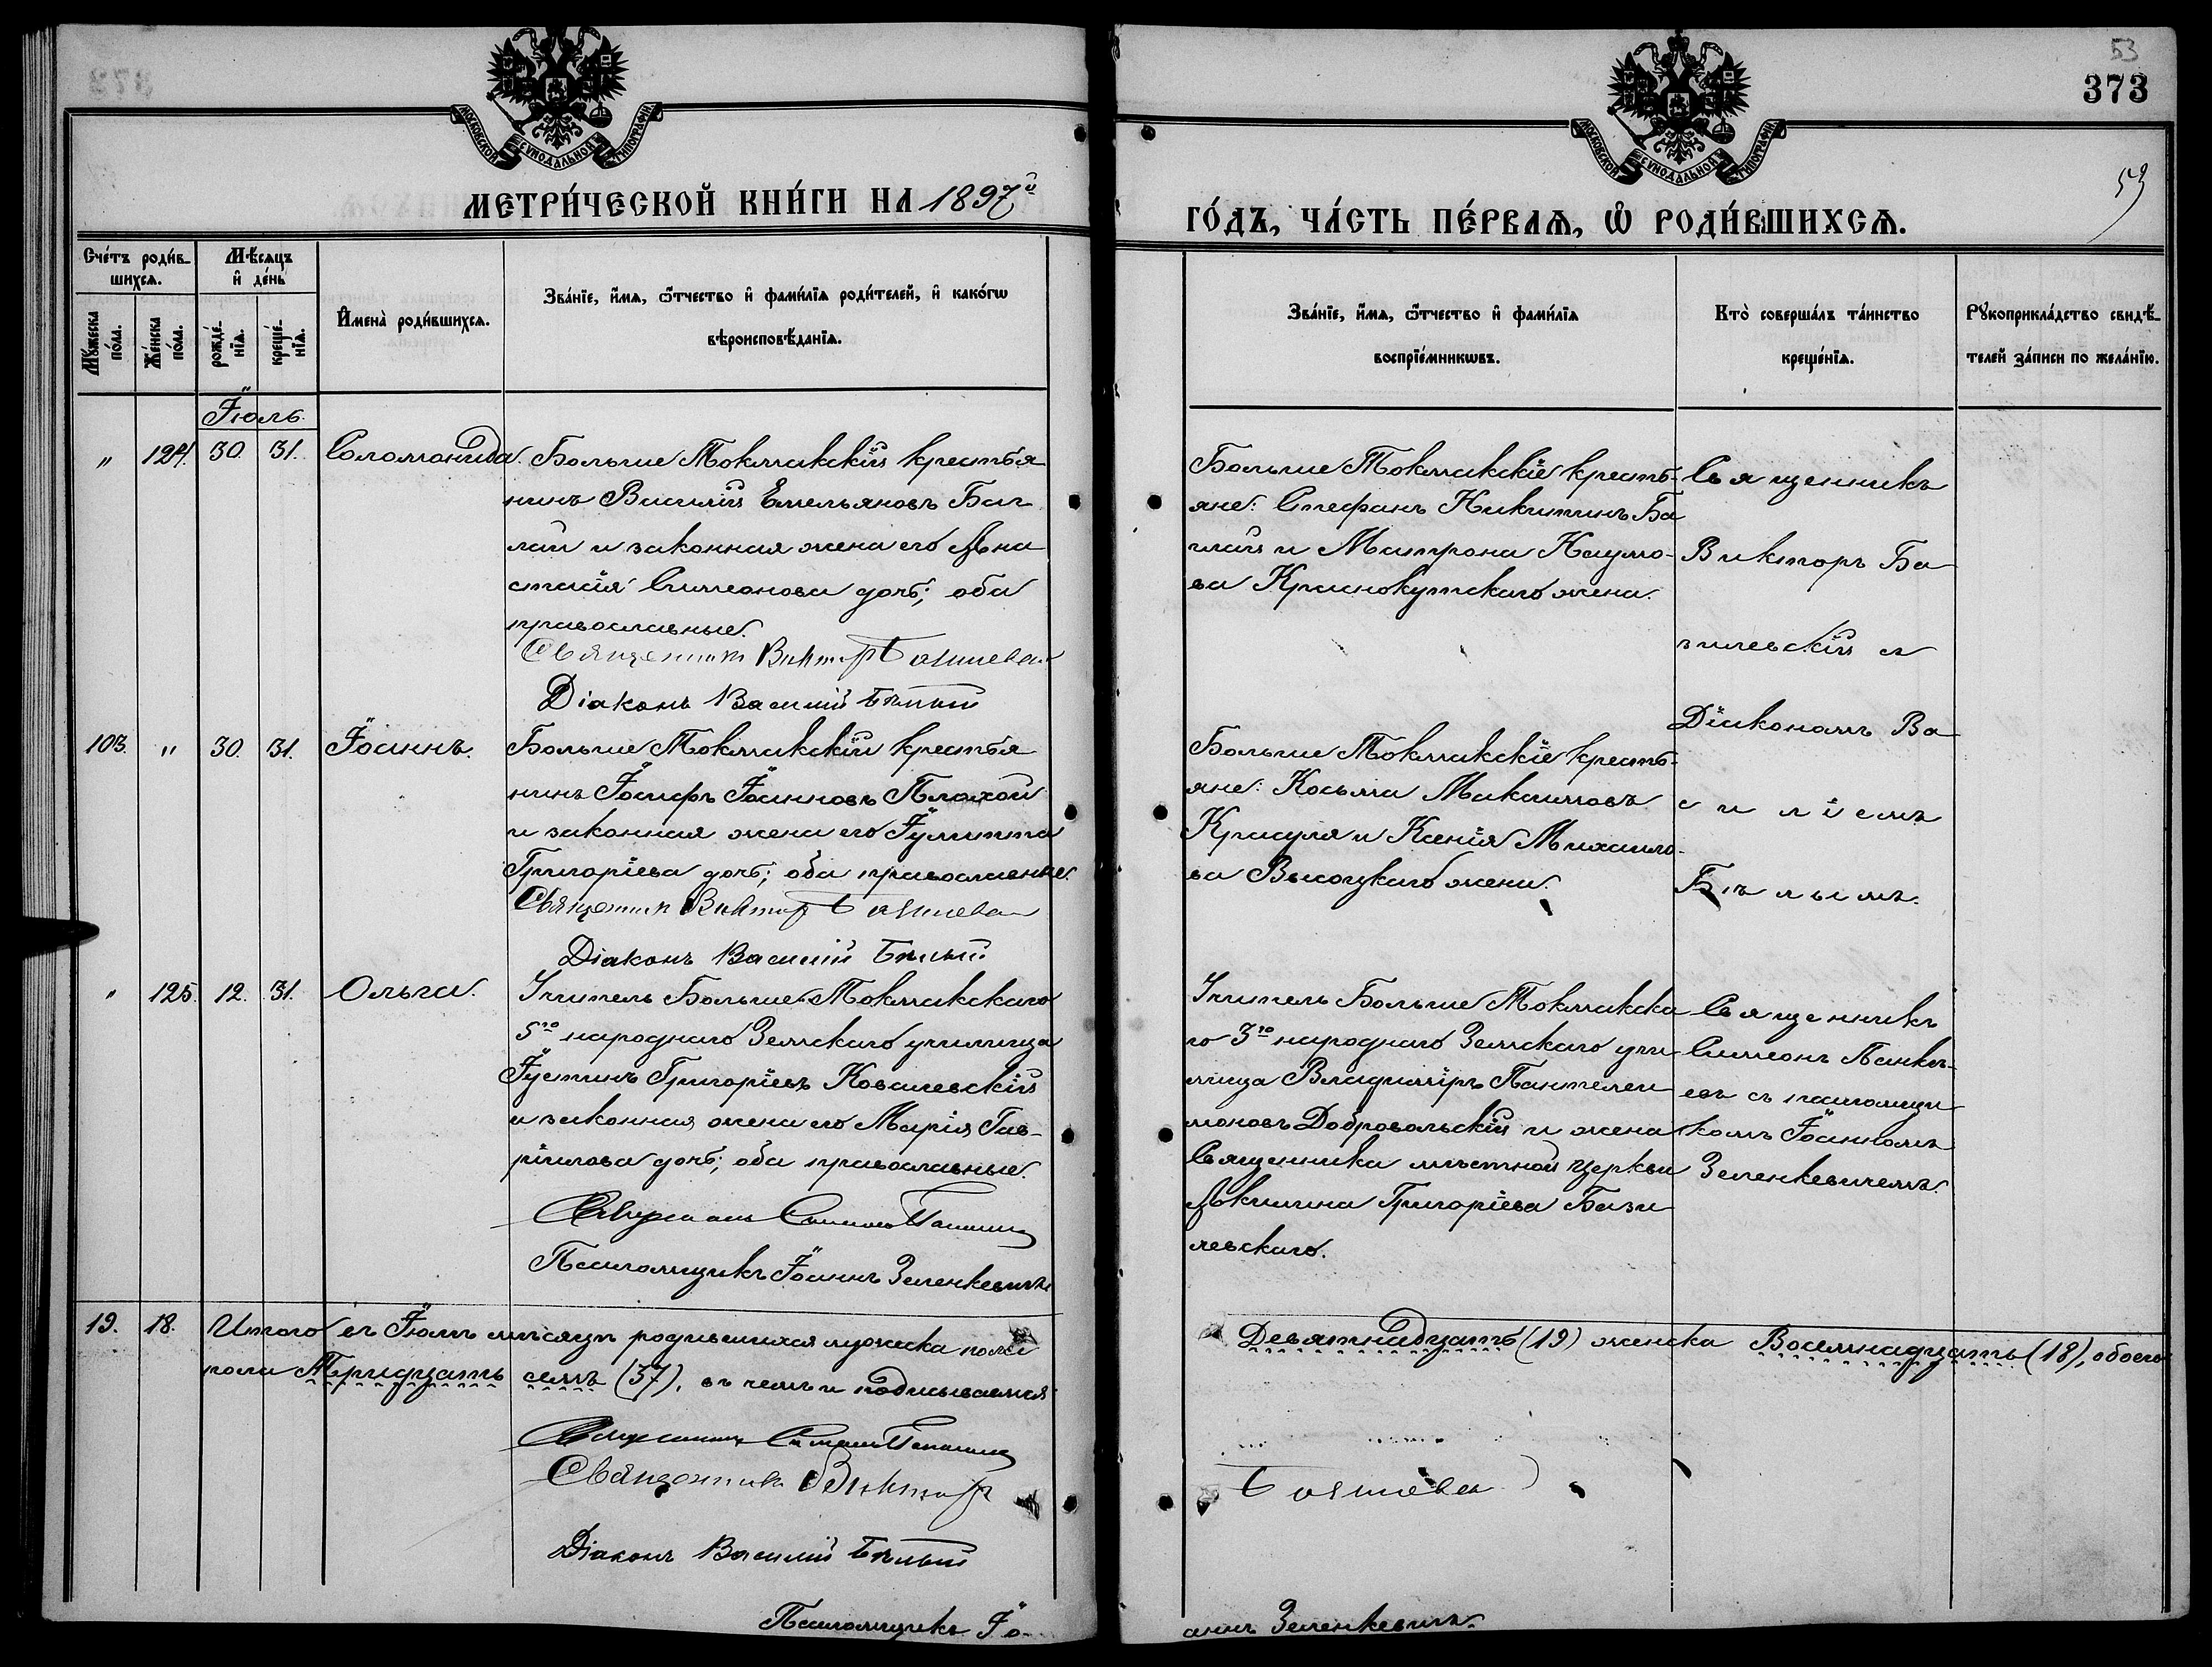 53
373
МОСКОВСКОЙ СѴНОДАЛЬНОЙ ТИПОГРАФІИ
МОСКОВСКОЙ СѴНОДАЛЬНОЙ ТИПОГРАФІИ
53
МЕТРИ́ЧЕСКОЙ КНИ́ГИ НА 1897й
ГО́ДЪ, ЧА́СТЬ ПЕ́РВАѦ, Ѡ҆ РОДИ́ВШИХСѦ.
Сче́тъ роди́в-
шихсѧ.
Мѣ́сѧцъ
и҆ де́нь
Мꙋ́жеска по́ла.
Же́нска по́ла.
рожде́-нїѧ.
креще́-нїѧ.
И҆мена̀ роди́вшихсѧ.
Зва́нїе, и҆́мѧ, ѻ҆́тчество и҆ фами́лїѧ роди́телей, и҆ како́гѡ
вѣроисповѣ́данїѧ.
Зва́нїе, и҆́мѧ, ѻ҆́тчество и҆ фами́лїѧ
воспрїе́мникѡвъ.
Кто̀ соверша́лъ та́инство
креще́нїѧ.
Рꙋкоприкла́дство свидѣ́-
телей за́писи по жела́нїю.
Іюль.
" 124. 30. 31. Соломонида.
Больше Токмакскій крестья
нинъ Василій Емельяновъ Баг
лай и законная жена его Ана
стасія Симеонова дочь; оба
православные.
Священникъ Викторъ Базилевскій
Діаконъ Василій Бѣлый
Больше Токмакскіе кресть-
яне: Стефанъ Никитинъ Ба
глай и Матрона Наумо-
ва Краснокутскаго жена.
Священникъ
Викторъ Ба
зилевскій съ
Діакономъ Ва
силіемъ
Бѣлымъ.
103. " 30. 31. Іоаннъ.
Больше Токмакскій крестья
нинъ Іосифъ Іоанновъ Плохой
и законная жена его Іулитта
Григоріева дочь; оба православные.
Священникъ Викторъ Базилевскій
Діаконъ Василій Бѣлый
Больше Токмакскіе кресть-
яне: Косьма Максимовъ
Красуля и Ксенія Михаило-
ва Высоцкаго жена.
" 125. 12. 31. Ольга.
Учитель Больше Токмакскаго
5го народнаго Земскаго училища
Іустинъ Григоріевъ Ковалевскій
и законная жена его Марія Гав-
ріилова дочь; оба православные.
Священникъ Симеонъ
Псаломщикъ Іоаннъ Зеленкевичъ
Учитель Больше Токмакска
го 3го народнаго Земскаго учи
лища Владиміръ Пантелеи
моновъ Добровольскій и жена
Священника мѣстной церкви
Акилина Григоріева Бази
левскаго.
Священникъ
Симеонъ
евъ съ псаломщи
комъ Іоанномъ
Зеленкевичемъ.
19. 18. Итого въ Іюлѣ мѣсяцѣ родившихся мужеска пола
Девятнадцать (19) женска Восемнадцать (18), обоего
пола Тридцать семь (37), въ чемъ и подписываемся:
Священникъ Симеонъ
Священникъ Викторъ
Базилевскій
Діаконъ Василій Бѣлый
Псаломщикъ Іо-
аннъ Зеленкевичъ.